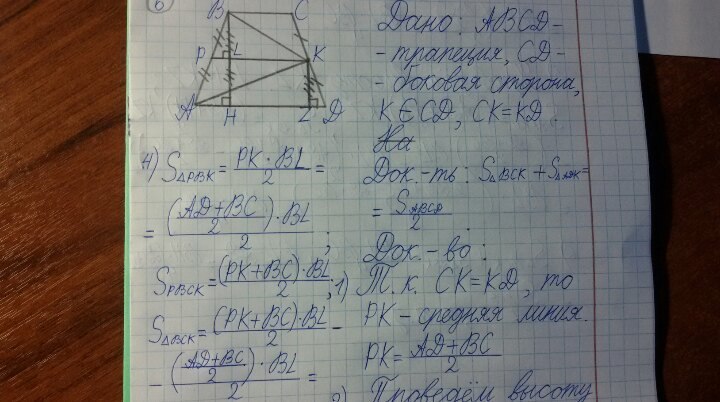 б)
B
C
P
L
K
A
H
Z
D
Дано: ABCD-
- трапеция, CD-
- боковая сторона,
K∈CD, CK=KD.
На
Док.-ть: S△BCK + S△ADK=
= SABCD/2
Док.-во:
1) Т.к. CK=KD, то
PK - средняя линия.
PK = (AD+BC)/2
2) Проведём высоту
4) S△PBK = (PK·BL)/2 =
= ((AD+BC)/2)·BL/2;
SPBCK = (PK+BC)·BL/2;
S△BCK = (PK+BC)·BL/2 -
- ((AD+BC)/2)·BL/2 =